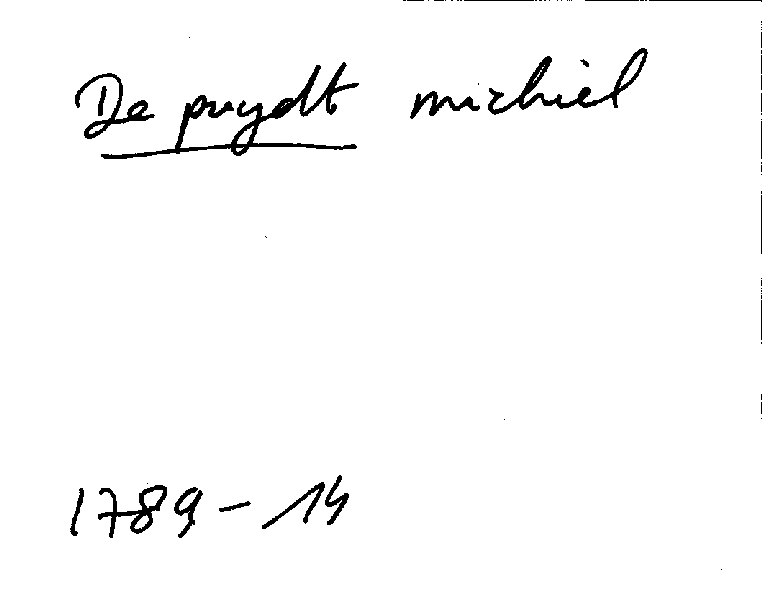 De puydt michiel
1789 - 14